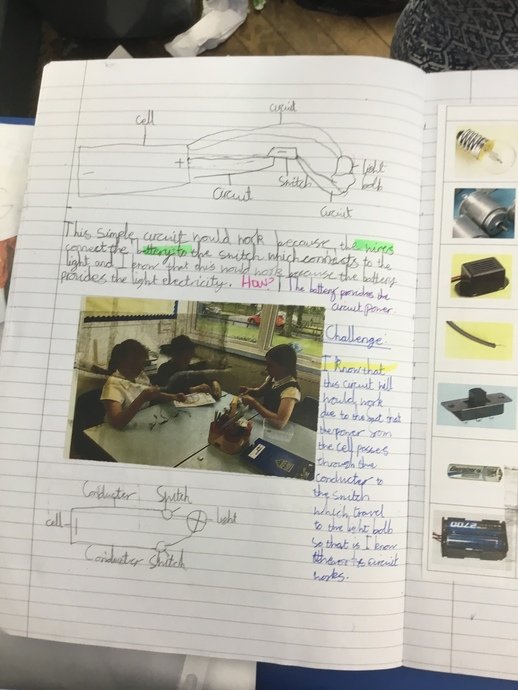 circuit
cell
+
-
light
bolb
Switch
Circuit
Circuit
This simple circuit would work because the wires
connect the battery to the switch which connects to the
light and I know that this would work because the battery
provides the light electricity. How? The battery provides the
circuit power.
Challenge
I know that
this circuit will
would work
due to the that
the power from
the cell passes
through the
conductor to
the switch
which travel
to the light bolb
so that is I know
circuit
works.
Conducter Switch
cell
light
Conducter Switch